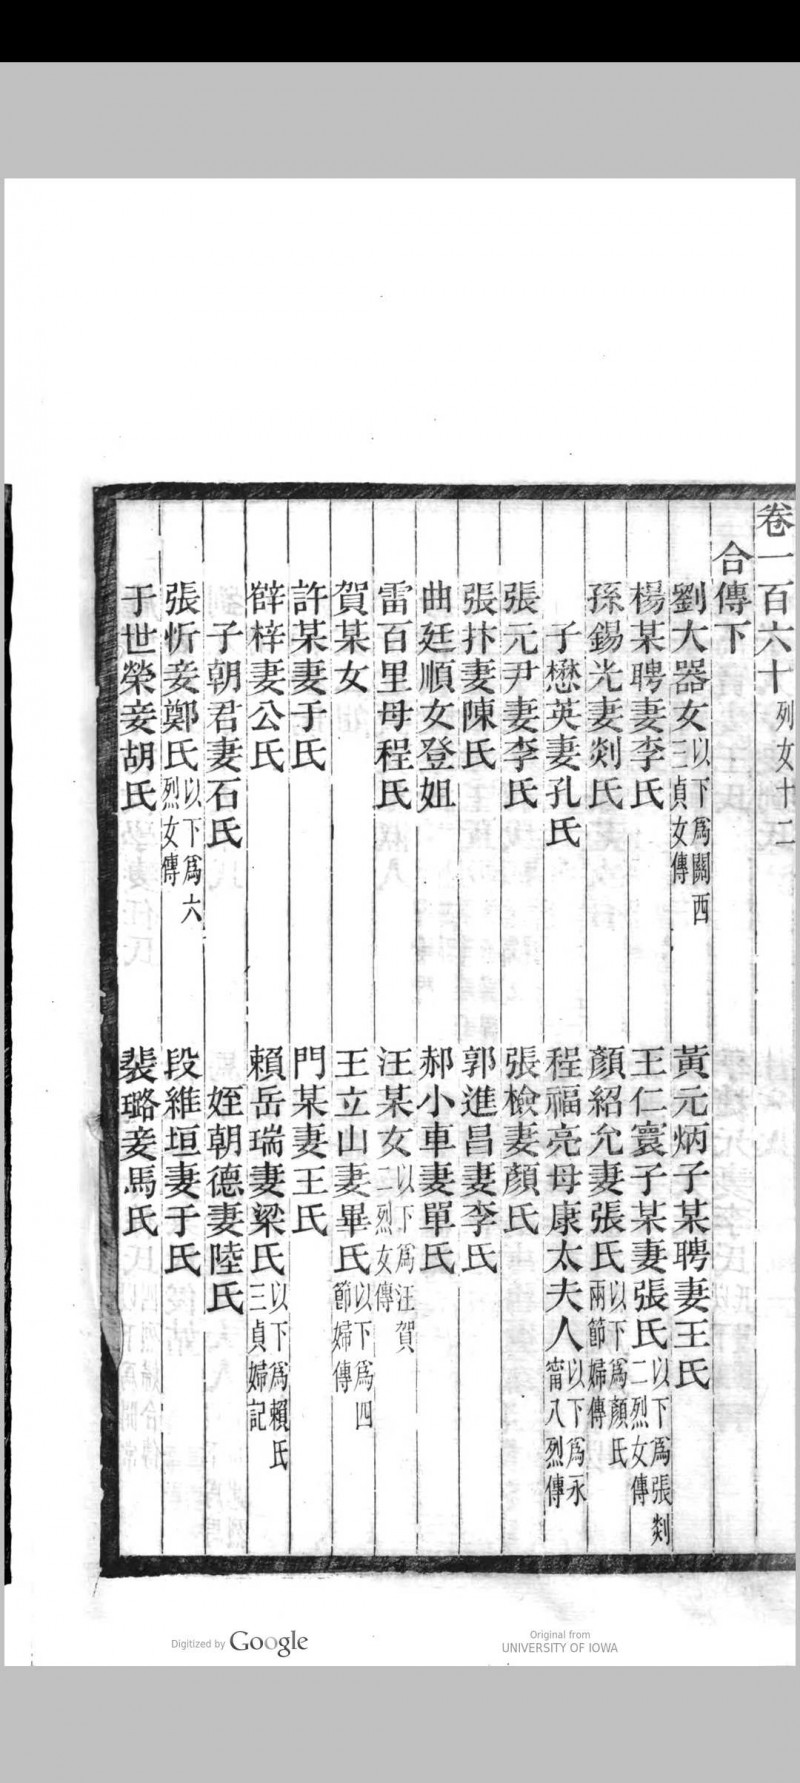 卷一百六十列女十二
合傳下
劉大器女以下爲關西三貞女傳
黃元炳子某聘妻王氏
楊某聘妻李氏
王仁寰子某妻張氏以下爲張剡二烈女傳
孫錫光妻剡氏
顏紹允妻張氏以下爲顏氏兩節婦傳
子懋英妻孔氏
程福亮母康太夫人以下爲永甯八烈傳
張元尹妻李氏
張檢妻顏氏
張抃妻陳氏
郭進昌妻李氏
曲廷順女登姐
郝小車妻單氏
雷百里母程氏
汪某女以下爲汪賀二烈女傳
賀某女
王立山妻畢氏以下爲四節婦傳
許某妻于氏
門某妻王氏
辥梓妻公氏
賴岳瑞妻梁氏以下爲賴氏三貞婦記
子朝君妻石氏
姪朝德妻陸氏
張忻妾鄭氏以下爲六烈女傳
段維垣妻于氏
于世榮妾胡氏
裴璐妾馬氏
Digitized by Google
Original from
UNIVERSITY OF IOWA